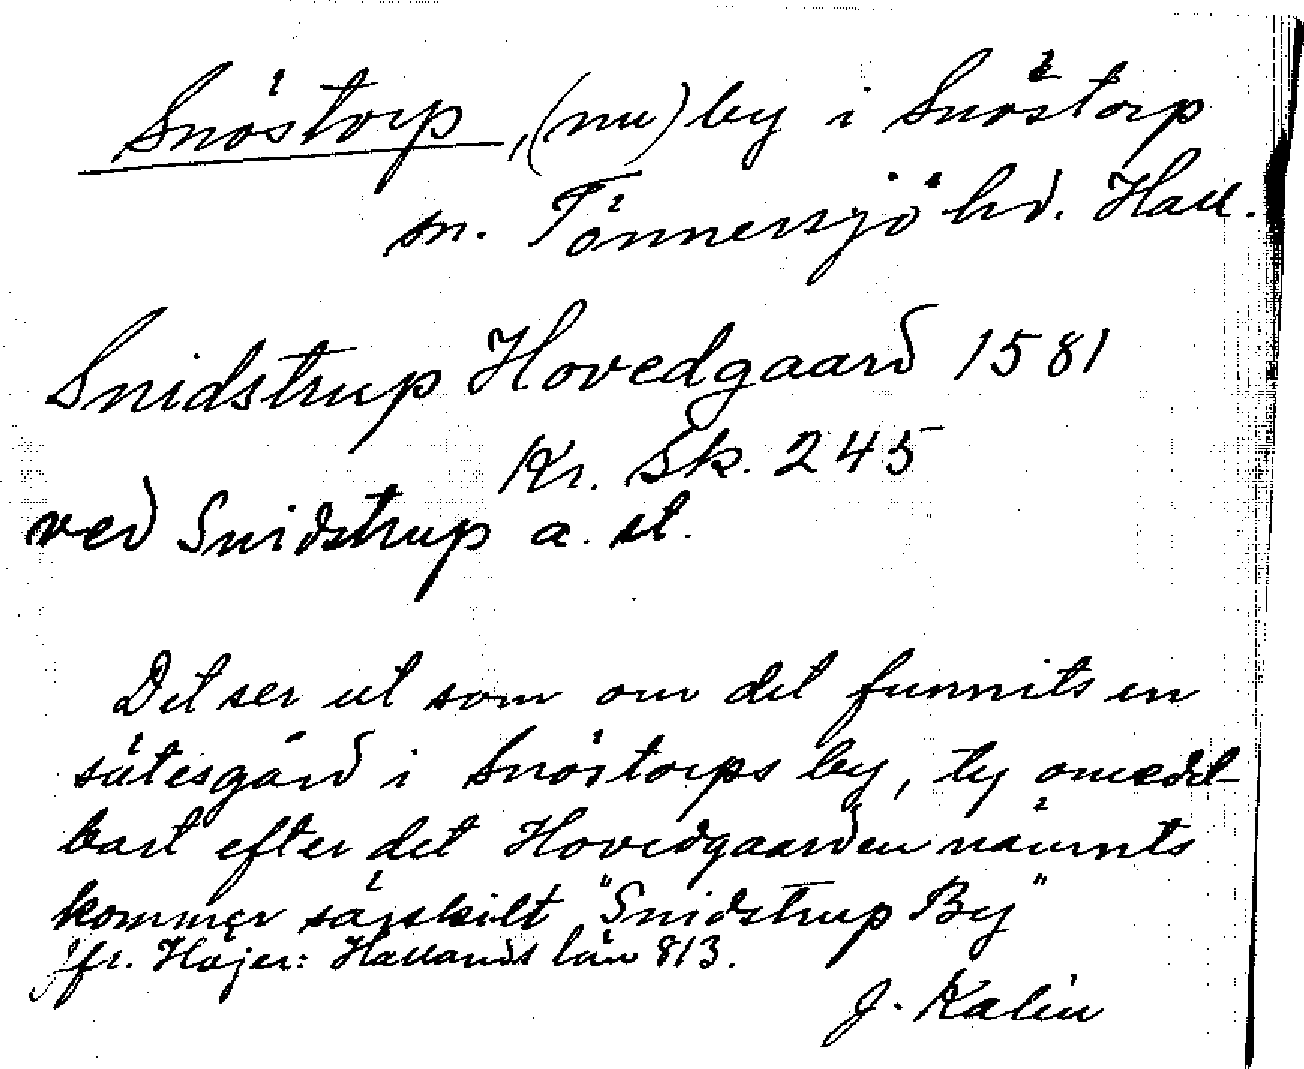 Snöstorp, (nu) by i Snöstorp
sn. Tönnersjö hd. Hall.
Snidstrup Hovedgaard 1581
Kr. Sk. 245
ved Snidstrup a. st.
Det ser ut som om det funnits en
sätesgård i Snöstorps by, ty omedel-
bart efter det Hovedgaarden nämnts
kommer särskilt "Snidstrup By"
Jfr. Höjer: Hallands län 813.
J. Kalén